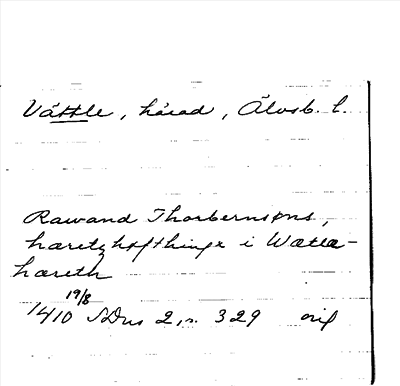 Vättle, härad, Älvsb. l.
Rawand Thorbernsøns,
hæretzhøfthinge i Wætlæ-
hæreth
19/8
1410 SDns 2, s. 329 orig